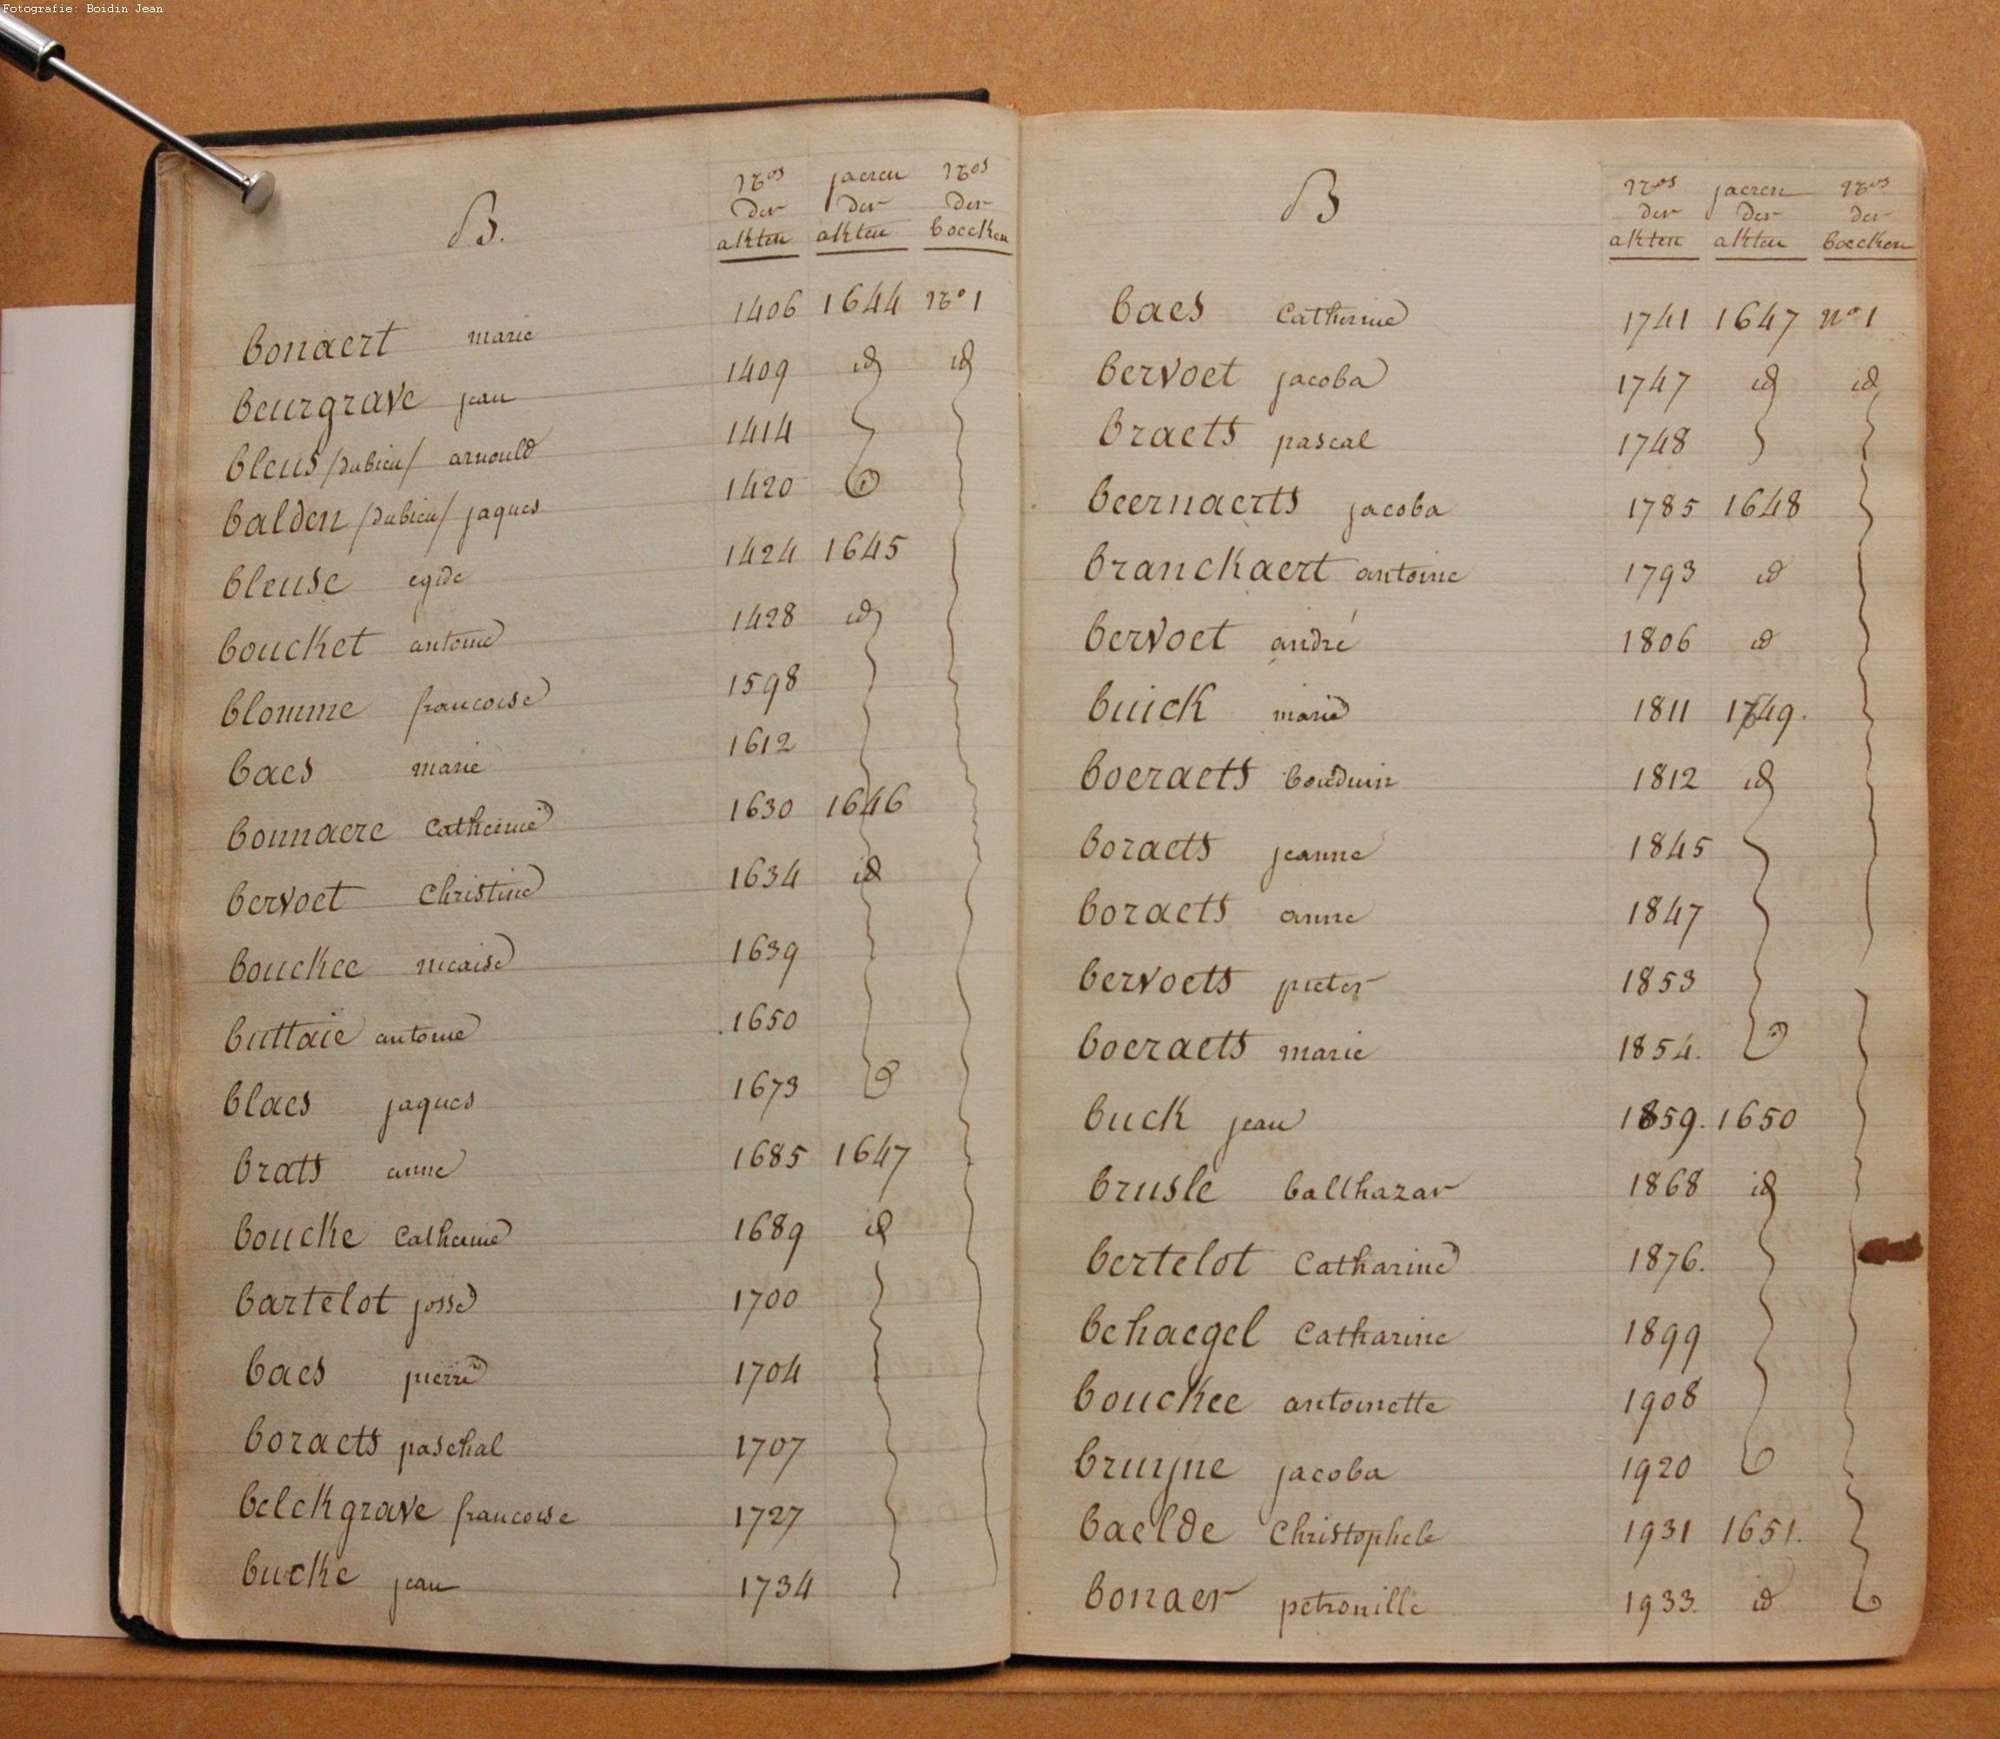 Fotografie: Boidin Jean
B.
Nos der akten jaeren der akten Nos der boecken
bonaert marie 1406 1644 No 1
beurgrave jean 1409 id id
bleus /dubieu/ arnould 1414
balden /dubieu/ jaques 1420
bleuse egide 1424 1645
boucket antoine 1428 id
blomme francoise 1598
baes marie 1612
bonnaere Catherine 1630 1646
bervoet Christine 1634 id
bouckee nicaise 1639
buttaie antoine 1650
blaes jaques 1673
brats anne 1685 1647
boucke Catherine 1689 id
bartelot josse 1700
baes pierre 1704
boraets paschal 1707
belckgrave francoise 1727
bucke jean 1734
B
Nos der akten jaeren der akten Nos der boecken
baes Catherine 1741 1647 no 1
bervoet jacoba 1747 id id
braets pascal 1748
beernaerts jacoba 1785 1648
branckaert antoine 1793 id
bervoet andré 1806 id
buick marie 1811 1649.
boeraets bouduin 1812 id
boraets jeanne 1845
boraets anne 1847
bervoets pieter 1853
boeraets marie 1854.
buck jean 1859. 1650
brusle balthazar 1868 id
bertelot Catharine 1876.
behaegel Catharine 1899
bouckee antoinette 1908
bruyne jacoba 1920
baelde Christophele 1931 1651.
bonaer petronille 1933. id